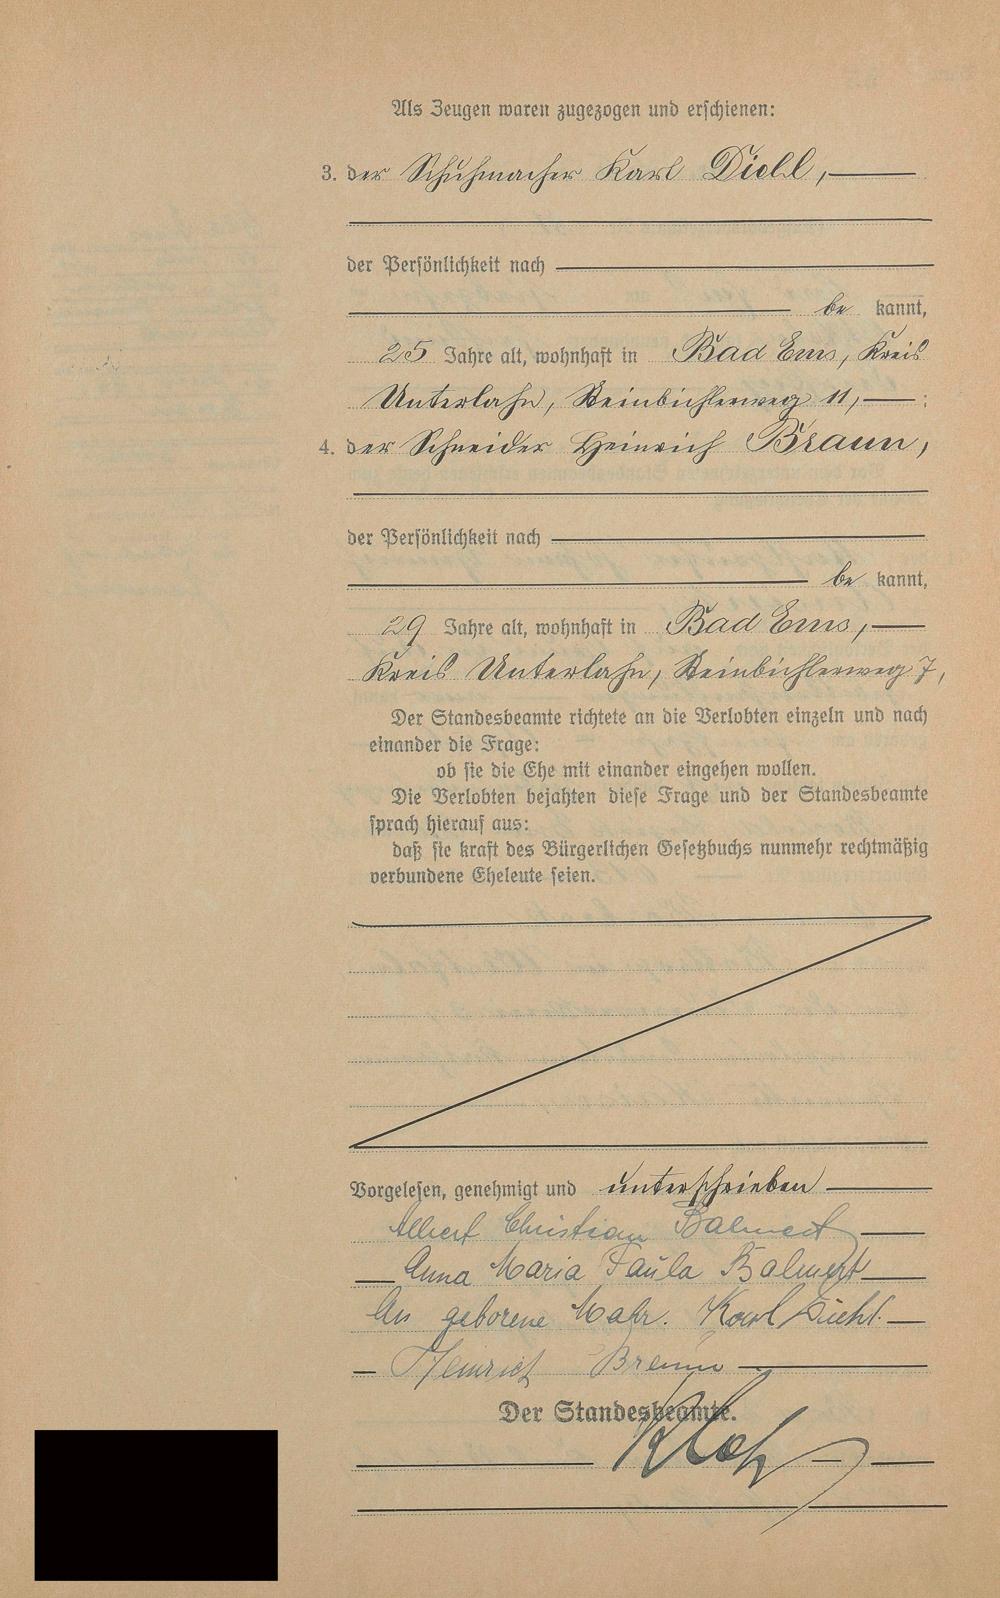 Als Zeugen waren zugezogen und erschienen:
3. der Schuhmacher Karl Diehl,
der Persönlichkeit nach
be kannt,
25 Jahre alt, wohnhaft in Bad Ems, Kreis
Unterlahn, Steinbichlerweg 11, ;
4. der Schneider Heinrich Braun,
der Persönlichkeit nach
be kannt,
29 Jahre alt, wohnhaft in Bad Ems,
Kreis Unterlahn, Steinbichlerweg 7,
Der Standesbeamte richtete an die Verlobten einzeln und nach
einander die Frage:
ob sie die Ehe mit einander eingehen wollen.
Die Verlobten bejahten diese Frage und der Standesbeamte
sprach hierauf aus:
daß sie kraft des Bürgerlichen Gesetzbuchs nunmehr rechtmäßig
verbundene Eheleute seien.
Vorgelesen, genehmigt und unterschrieben
Albert Christian Balmert
Anna Maria Paula Balmert
geborene Karl Diehl.
Heinrich Braun
Der Standesbeamte.